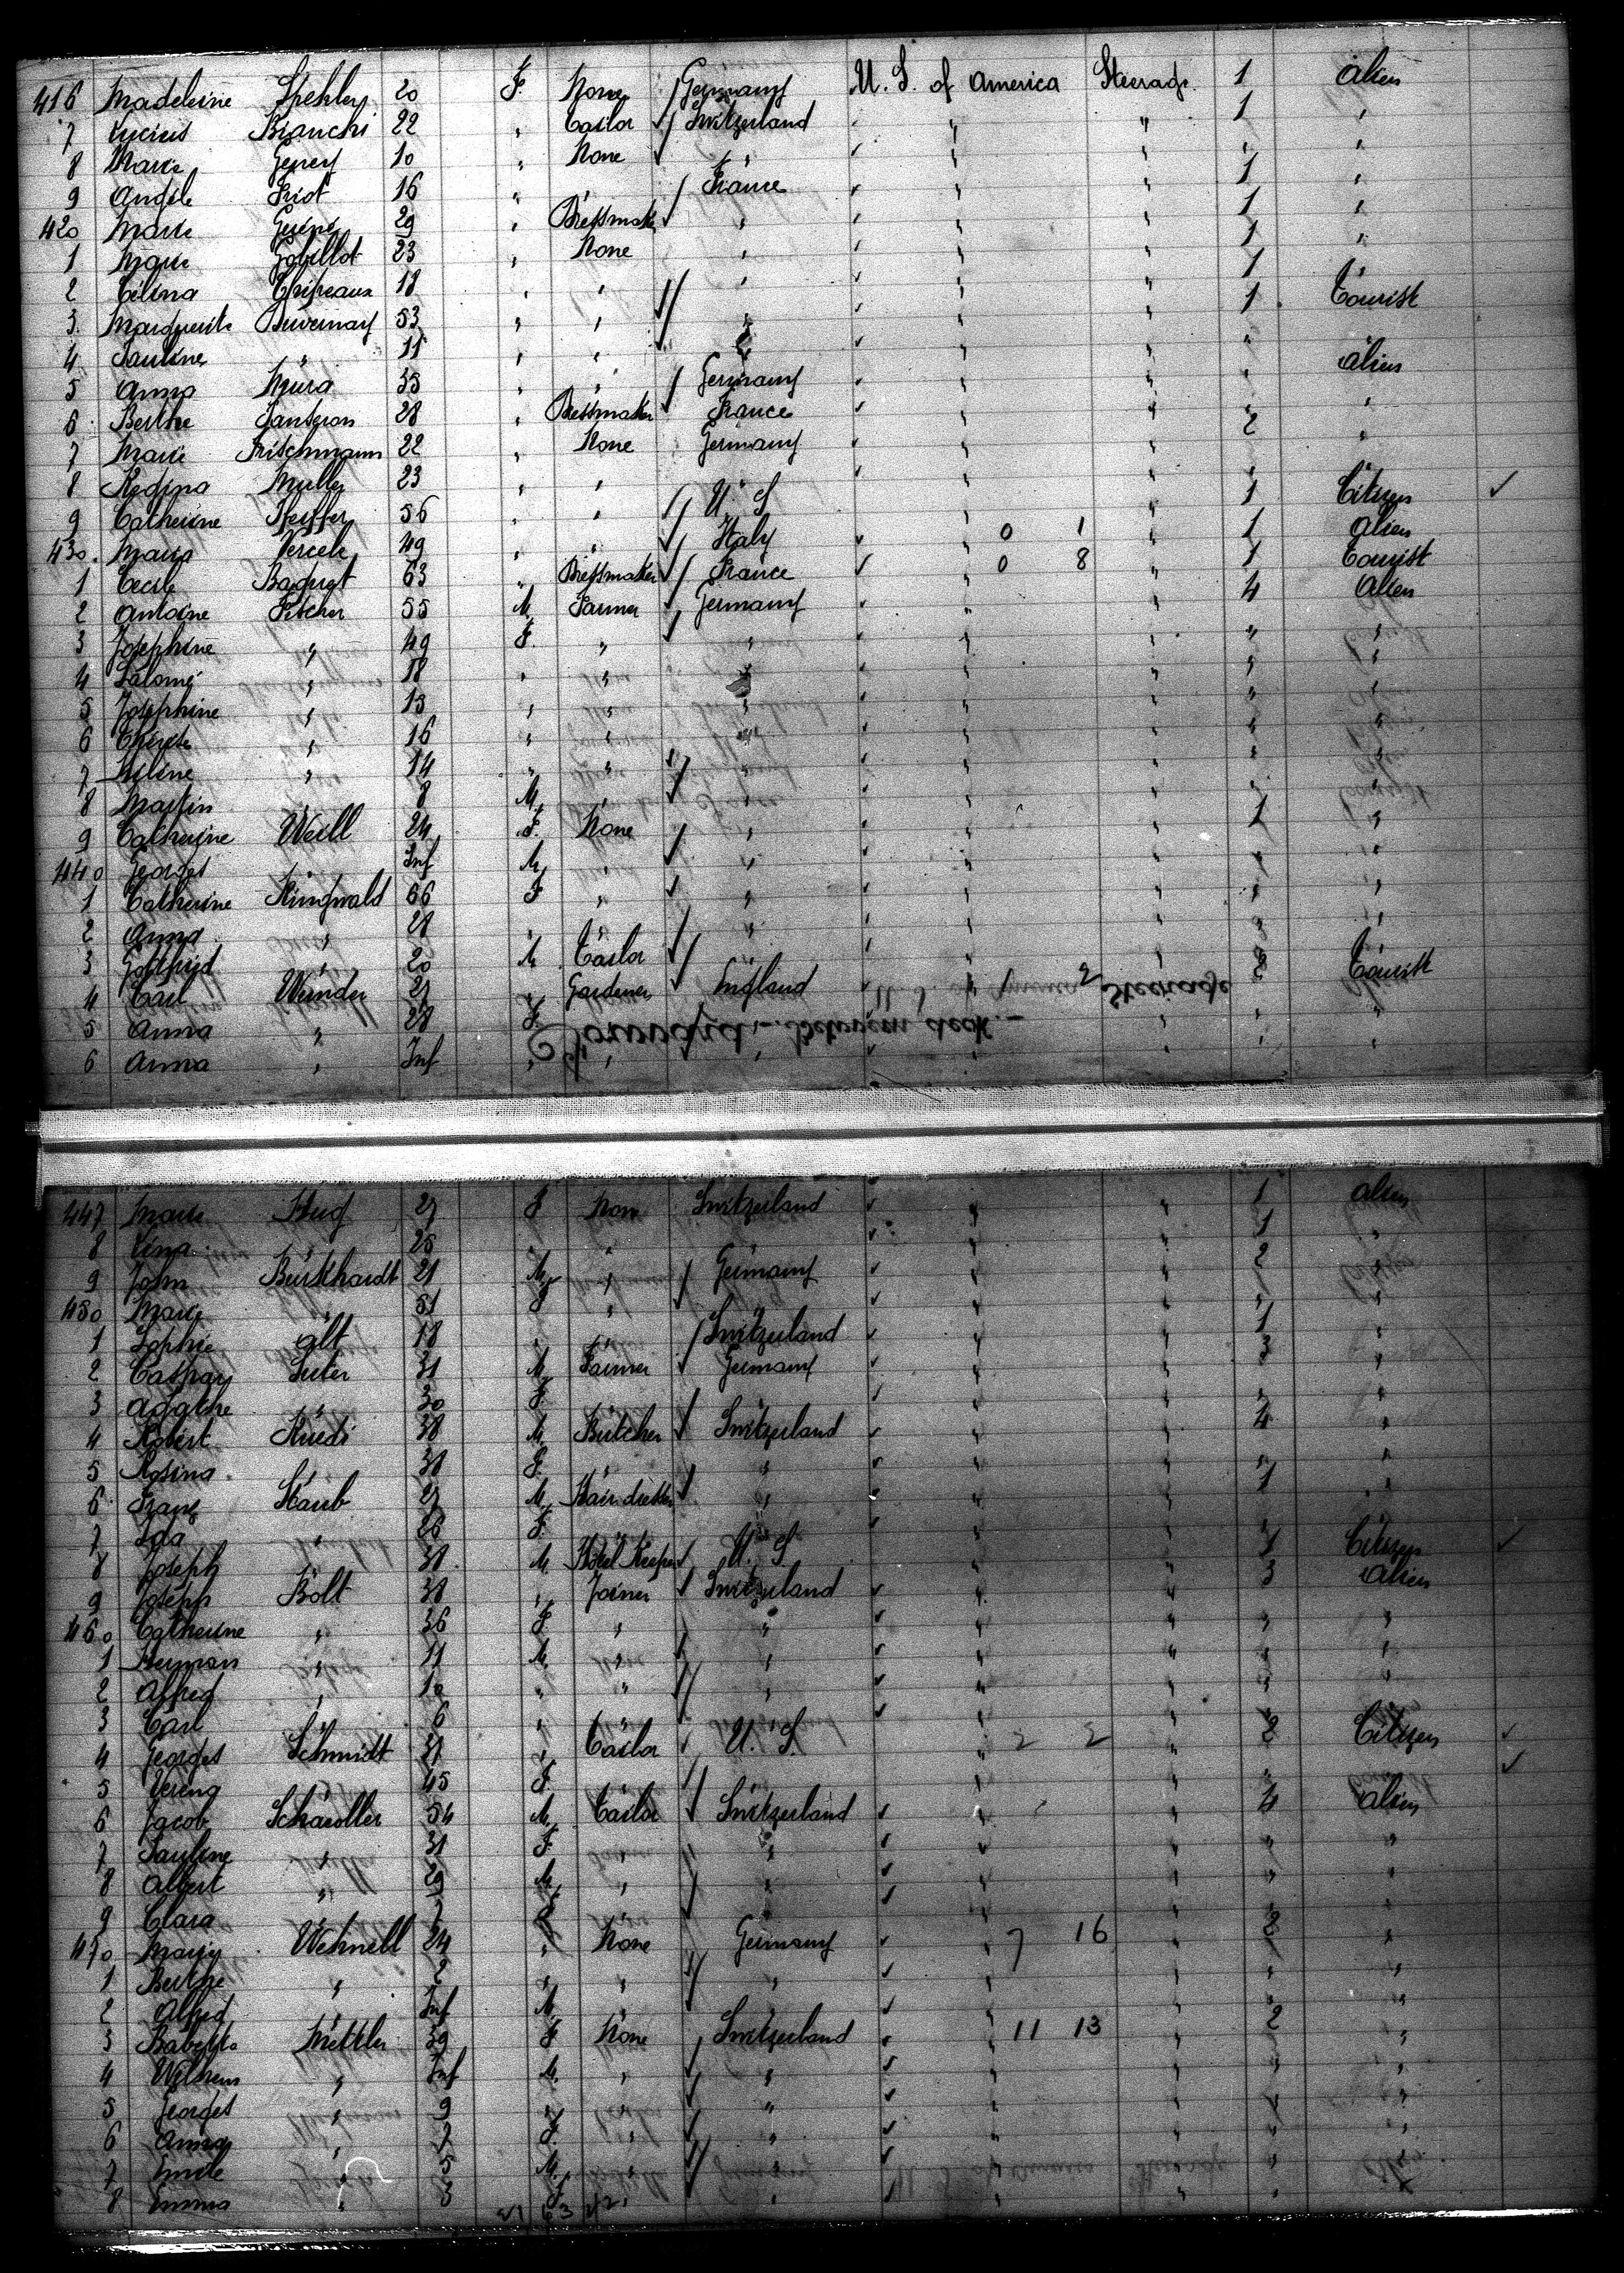 416 Madeleine Stehley 20 F. None Germany U. S. of America Steerage 1 alien
7 Lucius Bianchi 22 " Tailor Switzerland " " 1 "
8 Marie Geney 10 " None " " " " "
9 Angele Friot 16 " " France " " 1 "
420 Marie 29 " Dressmaker " " " 1 "
1 Marie Gobillot 23 " None " " " 1 "
2 Celina 18 " " " " " 1 "
3 Marguerite Duvernay 53 " " " " " 1 Tourist
4 Pauline " 11 " " " " " "
5 Anna Mura 35 " " Germany " " " alien
6 Berthe 28 " Dressmaker France " " "
7 Marie Fritschmann 22 " None Germany " " 2 "
8 Regina Muller 23 " " " " "
9 Catherine Pfeiffer 56 " " U. S " 1 Citizen
430 Maria Vercele 49 " " Italy " 0 1 " 1 alien
1 Cecile Baguet 63 " Dressmaker France " 0 8 " 1 Tourist
2 Antoine Fischer 55 M. Farmer Germany " " 4 Alien
3 Josephine " 49 F. " " " " " "
4 Salome " 18 " " " " " " "
5 Josephine " 13 " " " " " " "
6 " 16 " " " " " " "
7 " 14 " " " " " " "
8 Martin 8 M. " " " " " "
9 Catherine Weill 24 F. None " " " 1 "
440 Georges Inf M. " " " " " "
1 Catherine Ringwald 66 F " " " " " "
2 Anna " 28 " " " " " " "
3 Gottfried " 20 M Tailor " " " "
4 Carl Wunder 27 " Gardener England " 2 Steerage 2 Tourist
5 Anna " 28 F. " " " " " "
6 Anna " Inf " " " " " " "
Forward - Between deck. -
447 Marie Hug 27 F None Switzerland " " 1 alien
8 Lina " 25 " " " " " 1 "
9 John Burkhardt 21 M. " Germany " " 2 "
450 Marie " 51 F " " " " " "
1 Sophie Alt 18 " " Switzerland " " 1 "
2 Caspar Suter 31 M. Farmer Germany " " 3 "
3 Agathe " 30 F. " " " " " "
4 Robert Ruedi 38 M. Butcher Switzerland " " 4 "
5 Rosina " 38 F. " " " " " "
6 Franz Staub 27 M. Hair dresser " " " 1 "
7 Ida " 26 F. " " " "
8 Joseph " 38 M. Hotel Keeper U. S " " 1 Citizen
9 Joseph Bolt 38 " Joiner Switzerland " " 3 Alien
460 Catherine " 36 F. " " " " " "
1 Herman " 11 M. " " " " " "
2 Alfred " 10 " " " " " " "
3 Carl " 6 " " " " " "
4 Georges Schmidt 31 " Tailor U. S. " 2 2 2 Citizen
5 Verena " 45 F. " " "
6 Jacob Schaedler 54 M. Tailor Switzerland " " 4 Alien
7 Pauline " 31 F. " " " " " "
8 Albert " 29 M. " " " " " "
9 Clara " 7 F. " " " " "
470 Mary Wehnell 24 " None Germany " 7 16 " 2 "
1 Berthe " 2 " " " " " " "
2 Alfred " Inf M. " " " " " "
3 Babetta Mettler 39 F None Switzerland " 11 13 " 2 "
4 Wilhem " Inf M. " " " " " "
5 Georges " 9 " " " " " " "
6 Anna " 7 F. " " " " " "
7 Emile " 5 M. " " " " " "
8 Emma " 3 F. " " " " " "